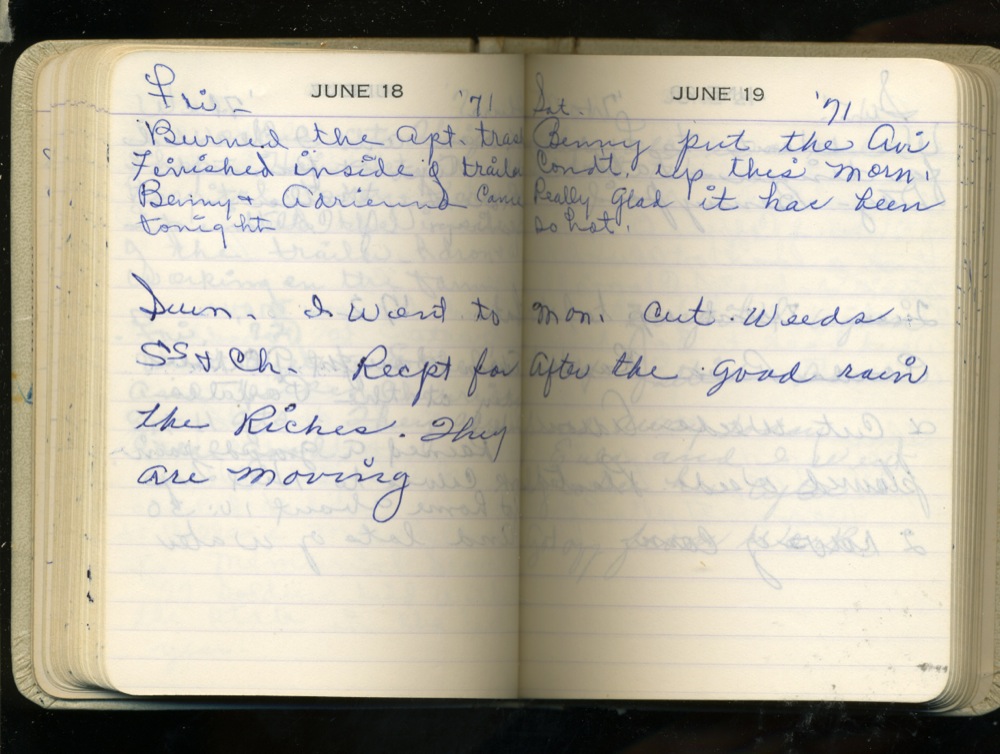 JUNE 18
Fri - '71
Burned the Apt. trash
Finished inside of trailer
Benny + Adrienne Came
tonight
Sun. I went to
SS + Ch. Recpt for
the Riches. They
are moving
JUNE 19
Sat. '71
Benny put the Air
Condt. up this morn.
Really Glad it has been
so hot.
Mon. Cut Weeds
After the good rain